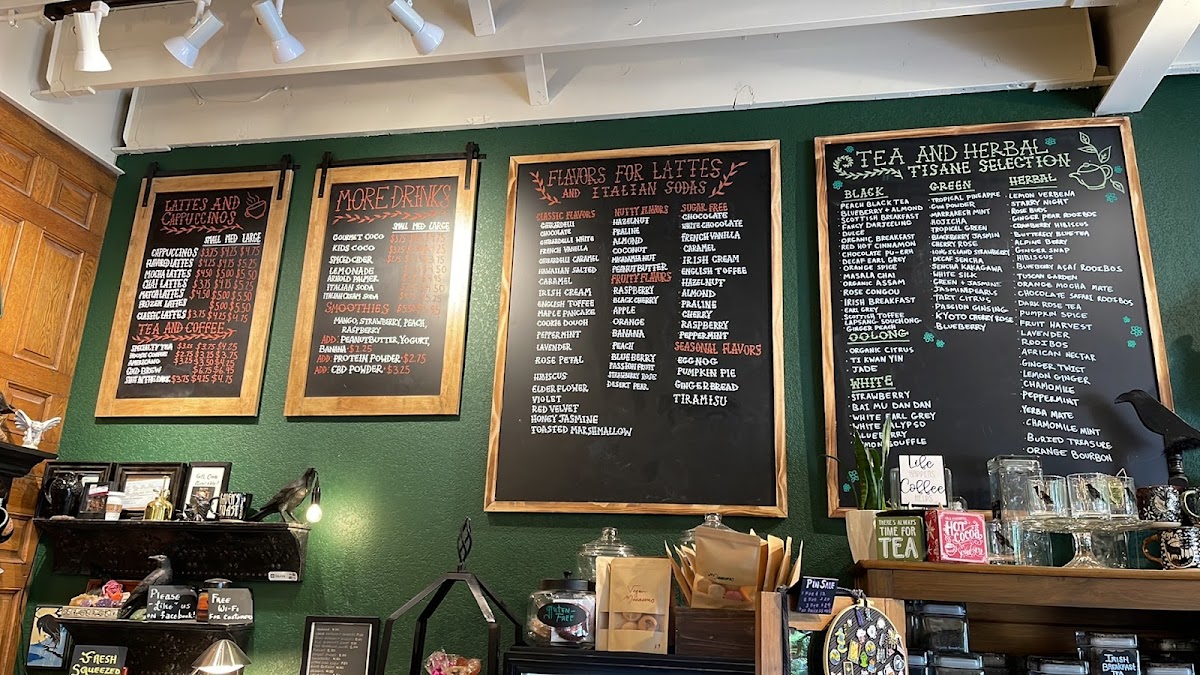 LATTES AND
CAPPUCCINOS
SMALL MED LARGE
CAPPUCCINOS $3.75 $4.25 $4.75
FLAVORED LATTES
MOCHA LATTES
CHAI LATTES
MATCHA LATTES $4.50 $5.00 $5.50
FROZEN LATTES $5.00 $5.50
CLASSIC LATTES $3.75 $4.25 $4.75
TEA AND COFFEE
SPECIALTY TEA
HOUSE COFFEE
AMERICANO
COLD BREW
SHOT IN THE DARK $3.75 $4.25 $4.75
MORE DRINKS
SMALL MED LARGE
GOURMET COCO
KIDS COCO
SPICED CIDER
LEMONADE
ARNOLD PALMER
ITALIAN SODA
ITALIAN CREAM SODA
SMOOTHIES
MANGO, STRAWBERRY, PEACH,
RASPBERRY
ADD: PEANUTBUTTER, YOGURT,
BANANA +$1.25
ADD: PROTEIN POWDER +$2.75
ADD: CBD POWDER +$3.25
FLAVORS FOR LATTES
AND ITALIAN SODAS
CLASSIC FLAVORS
GHIRARDELLI
CHOCOLATE
GHIRARDELLI WHITE
FRENCH VANILLA
GHIRARDELLI CARAMEL
HAWAIIAN SALTED
CARAMEL
IRISH CREAM
ENGLISH TOFFEE
MAPLE PANCAKE
COOKIE DOUGH
PEPPERMINT
LAVENDER
ROSE PETAL
HIBISCUS
ELDERFLOWER
VIOLET
RED VELVET
HONEY JASMINE
TOASTED MARSHMALLOW
NUTTY FLAVORS
HAZELNUT
PRALINE
ALMOND
COCONUT
MACADAMIA NUT
PEANUTBUTTER
FRUITY FLAVORS
RASPBERRY
BLACK CHERRY
APPLE
ORANGE
BANANA
PEACH
BLUEBERRY
PASSION FRUIT
STRAWBERRY ROSE
DESERT PEAR
SUGAR FREE
CHOCOLATE
WHITE CHOCOLATE
FRENCH VANILLA
CARAMEL
IRISH CREAM
ENGLISH TOFFEE
HAZELNUT
ALMOND
PRALINE
CHERRY
RASPBERRY
PEPPERMINT
SEASONAL FLAVORS
EGGNOG
PUMPKIN PIE
GINGERBREAD
TIRAMISU
TEA AND HERBAL
TISANE SELECTION
BLACK
PEACH BLACK TEA
BLUEBERRY + ALMOND
SCOTTISH BREAKFAST
FANCY DARJEELING
DULCE
ORGANIC BREAKFAST
RED HOT CINNAMON
CHOCOLATE PU-ERH
DECAF EARL GREY
ORANGE SPICE
MASALA CHAI
ORGANIC ASSAM
ROSE CONGOU
IRISH BREAKFAST
EARL GREY
SCOTTISH TOFFEE
LAPSANG SOUCHONG
GINGER PEACH
OOLONG
ORGANIC CITRUS
TI KWAN YIN
JADE
WHITE
STRAWBERRY
BAI MU DAN DAN
WHITE EARL GREY
WHITE CALYPSO
BLUEBERRY
LEMON SOUFFLE
GREEN
TROPICAL PINEAPPLE
GUN POWDER
MARRAKECH MINT
HOJICHA
TROPICAL GREEN
BLACKBERRY JASMIN
CHERRY ROSE
LONG ISLAND STRAWBERRY
DECAF SENCHA
SENCHA KAKAGAWA
WHITE SILK
GREEN + JASMINE
JASMIN PEARLS
TART CITRUS
PASSION GINSING
KYOTO CHERRY ROSE
BLUEBERRY
HERBAL
LEMON VERBENA
STARRY NIGHT
ROSE BUDS
GINGER PEAR ROOIBOS
CRANBERRY HIBISCUS
BUTTERFLY BLUE TEA
ALPINE BERRY
GINGER SNAP
HIBISCUS
BLUEBERRY AÇAÍ ROOIBOS
TUSCAN GARDEN
ORANGE MOCHA MATE
CHOCOLATE SAFARI ROOIBOS
DARK ROSE TEA
PUMPKIN SPICE
FRUIT HARVEST
LAVENDER
ROOIBOS
AFRICAN NECTAR
GINGER TWIST
LEMON GINGER
CHAMOMILE
PEPPERMINT
YERBA MATE
CHAMOMILE MINT
BURIED TREASURE
ORANGE BOURBON
Life
HAPPENS
Coffee
HELPS
THERE'S ALWAYS
TIME FOR
TEA
HOT
COCOA
Please
"Like" us
on facebook!
FREE
WI-FI
FOR CUSTOMERS
FRESH
SQUEEZED
gluten
FREE
PIN SALE
IRISH
BREAKFAST
TEA